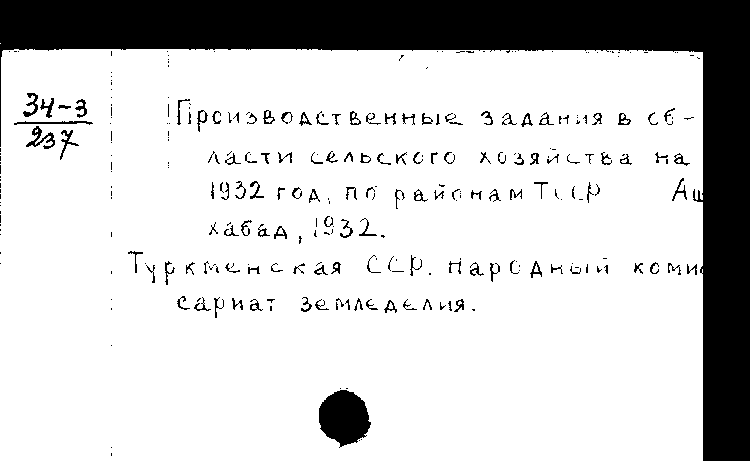 34-3
237
Производственные задания в об-
ласти сельского хозяйства на
1932 год, по районам ТССР Аш
хабад, 1932.
Туркменская ССР. Народный комис
сариат земледелия.